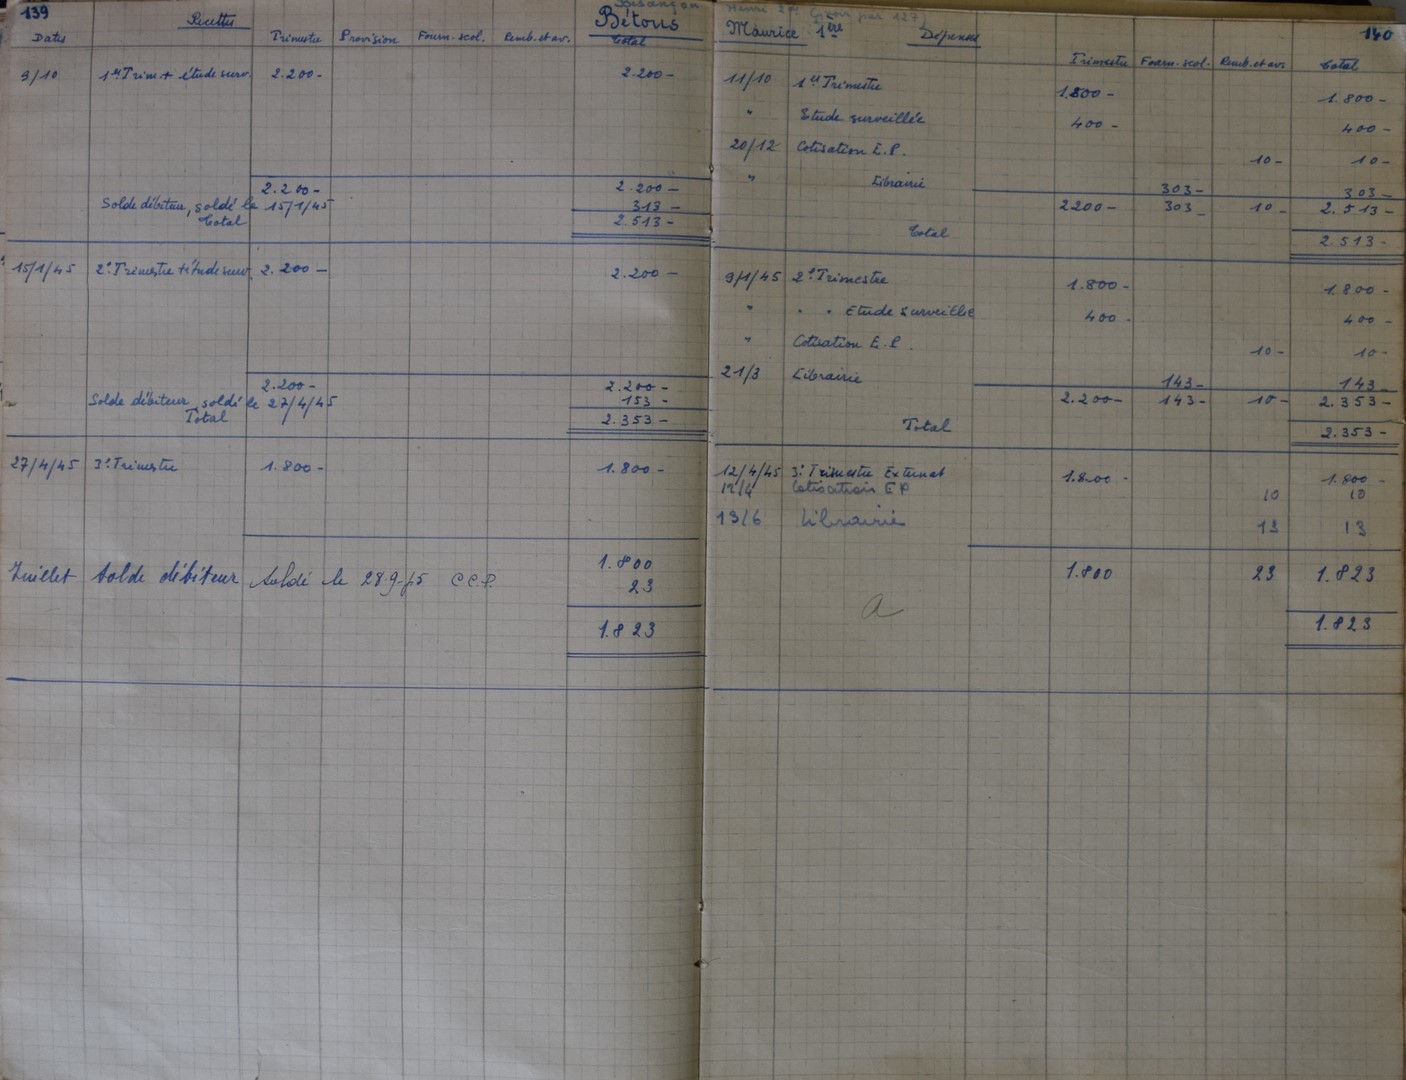 139
Recettes
Bétous
Dates Trimestre Provision Fourn-scol. Remb. et av. Total
9/10 1er Trim + étude surv. 2.200- 2.200-
2.200- 2.200-
Solde débiteur, soldé le 15/1/45 313-
Total 2.513-
15/1/45 2e Trimestre + étude surv. 2.200- 2.200-
2.200- 2.200-
Solde débiteur, soldé le 27/4/45 153-
Total 2.353-
27/4/45 3e Trimestre 1.800- 1.800-
1.800
Juillet Solde débiteur soldé le 28-9-45 C.C.P. 23
1.823
140
Maurice 1ère Dépenses
Trimestre Fourn-scol. Remb. et av. Total
11/10 1er Trimestre 1.800- 1.800-
" Etude surveillée 400- 400-
20/12 Cotisation E.P. 10- 10-
" Librairie 303- 303-
2200- 303- 10- 2.513-
Total 2.513-
9/1/45 2e Trimestre 1.800- 1.800-
" " " Etude surveillée 400- 400-
" Cotisation E.P. 10- 10-
21/3 Librairie 143- 143-
2.200- 143- 10- 2.353-
Total 2.353-
12/4/45 3e Trimestre Externat 1.800- 1.800-
12/4 Cotisation EP 10 10
13/6 Librairie 13 13
1.800 23 1.823
1.823
a